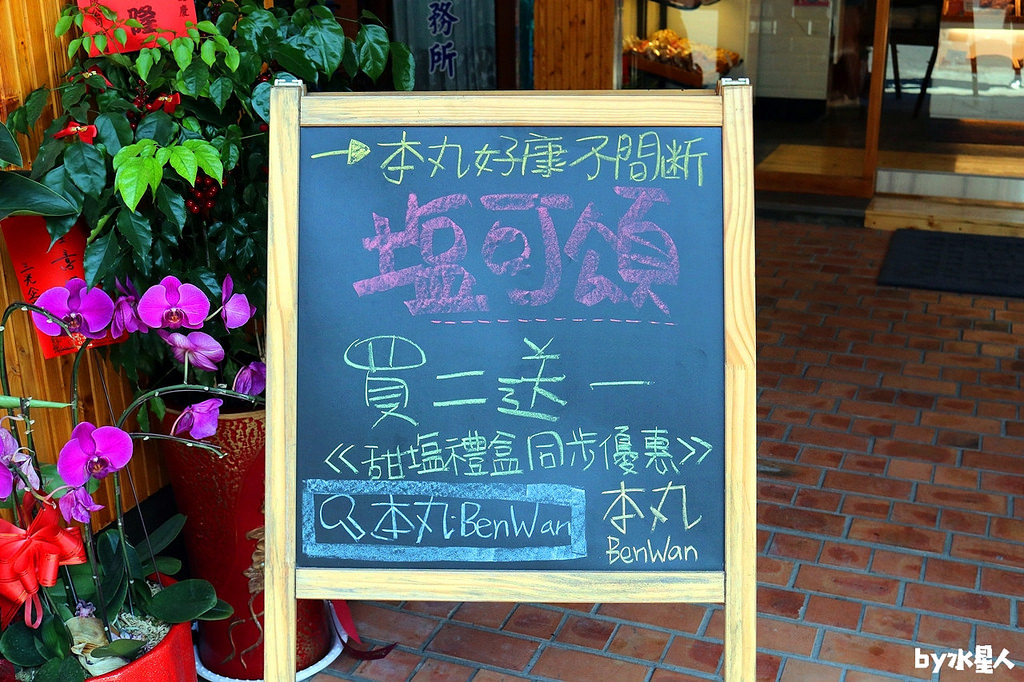 隆
務所
喜
→本丸好康不間斷
塩可頌
買二送一
<<甜塩禮盒同步優惠>>
本丸BenWan
本丸
BenWan
by水星人